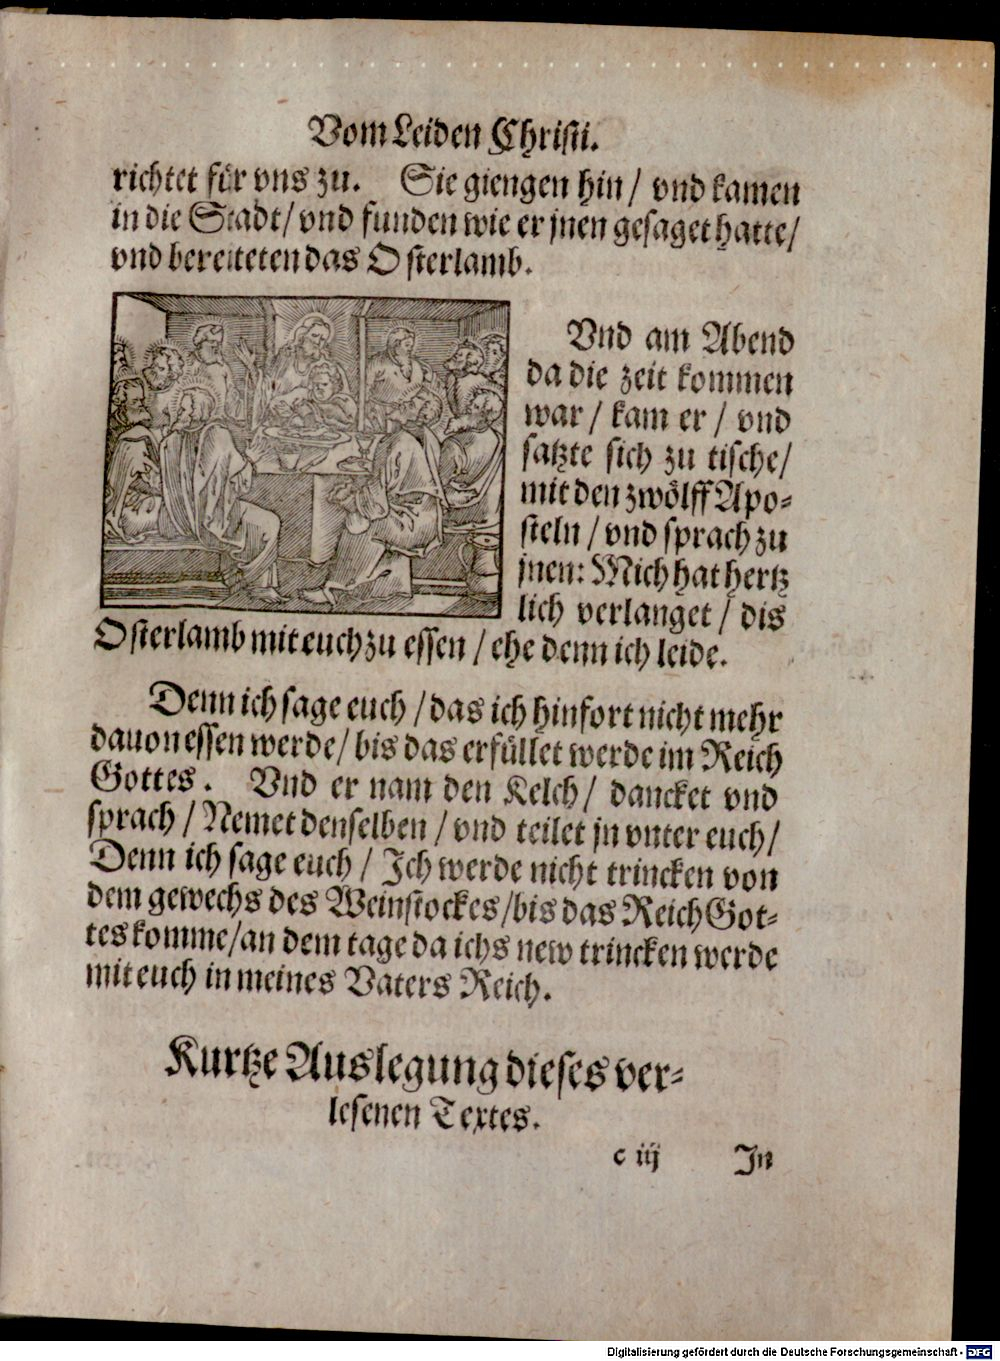 Vom Leiden Christi.
richtet für vns zu. Sie giengen hin / vnd kamen
in die Stadt / vnd funden wie er jnen gesaget hatte /
vnd bereiteten das Osterlamb.
Vnd am Abend
da die zeit kommen
war / kam er / vnd
satzte sich zu tische /
mit den zwölff Apo-
steln / vnd sprach zu
jnen: Mich hat hertz
lich verlanget / dis
Osterlamb mit euch zu essen / ehe denn ich leide.
Denn ich sage euch / das ich hinfort nicht mehr
dauon essen werde / bis das erfüllet werde im Reich
Gottes. Vnd er nam den Kelch / dancket vnd
sprach / Nemet denselben / vnd teilet jn vnter euch /
Denn ich sage euch / Ich werde nicht trincken von
dem gewechs des Weinstockes / bis das Reich Got-
tes komme / an dem tage da ichs new trincken werde
mit euch in meines Vaters Reich.
Kurtze Auslegung dieses ver-
lesenen Textes.
c iij In
Digitalisierung gefördert durch die Deutsche Forschungsgemeinschaft - DFG